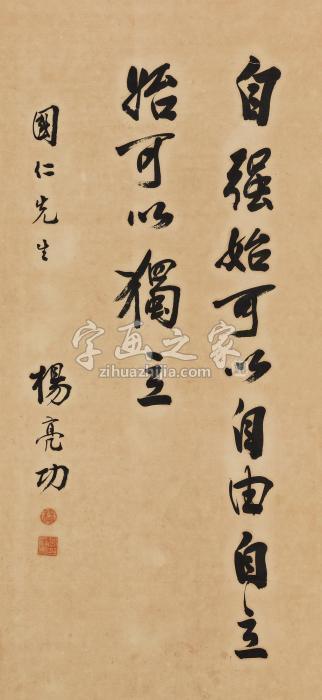 自强始可以自由自立
始可以獨立
國仁先生
楊亮功
字画之家
zihuazhijia.com